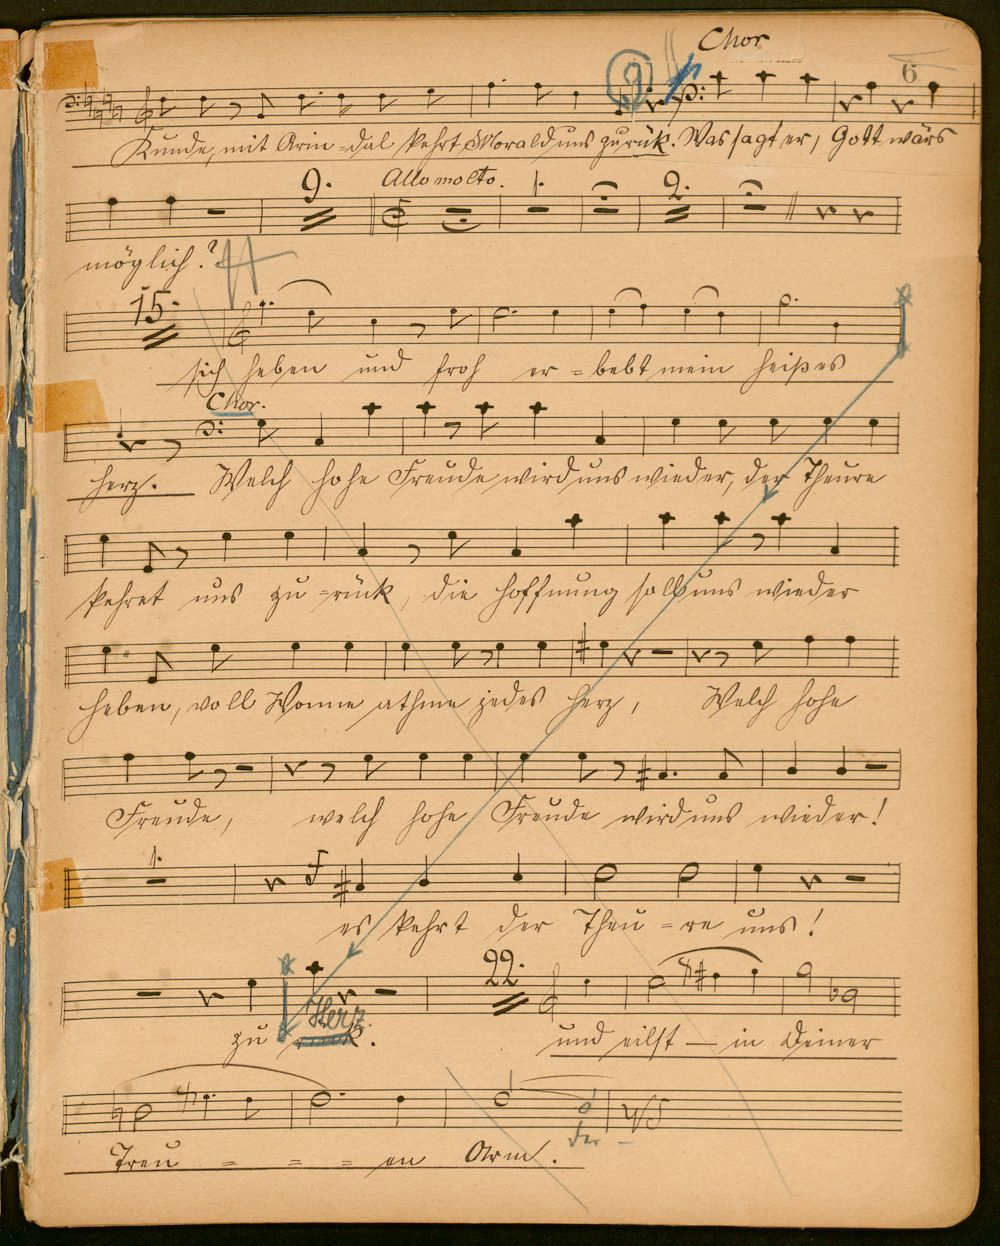 Chor
6
Kunde, mit Arin-dal kehrt Morald uns zurük. Was sagt er, Gott wärs
9. Allo molto. 1. 2.
möglich?
15.
sich heben und froh er=bebt mein heißes
Chor.
Herz. Welch hohe Freude wird uns wieder, der Theure
kehret uns zu=rück, die Hoffnung soll uns wieder
heben, voll Wonne athme jedes Herz, Welch hohe
Freude, welch hohe Freude wird uns wieder!
1. f
es kehrt der Theu=re uns!
22.
Herz.
zu rück. und eilst — in Deiner
der –
Treu = = = en Arm.